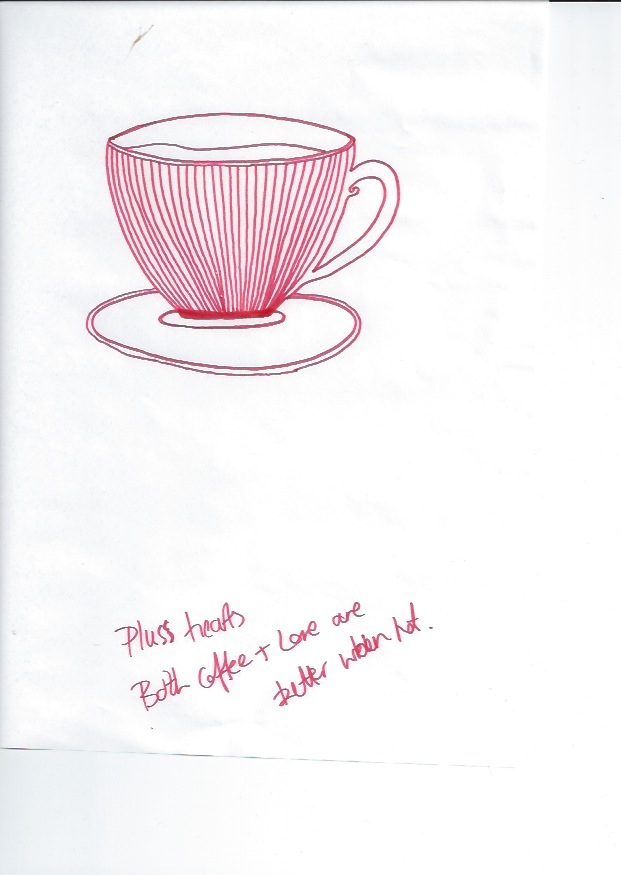 Pluss hearts
Both Coffee + Love are
better when hot.